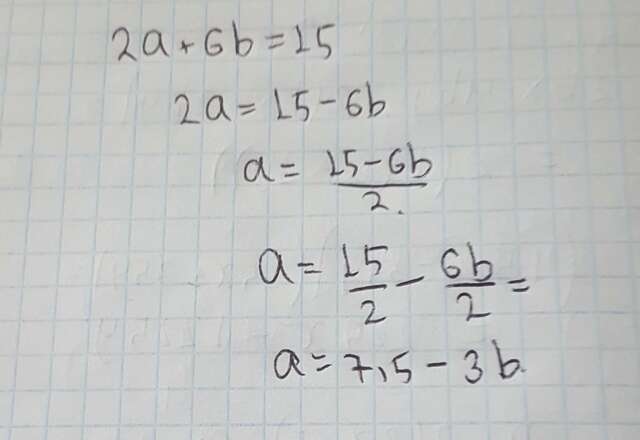 2a+6b=15
2a=15-6b
a=15-6b/2.
a=15/2-6b/2=
a=7,5-3b.